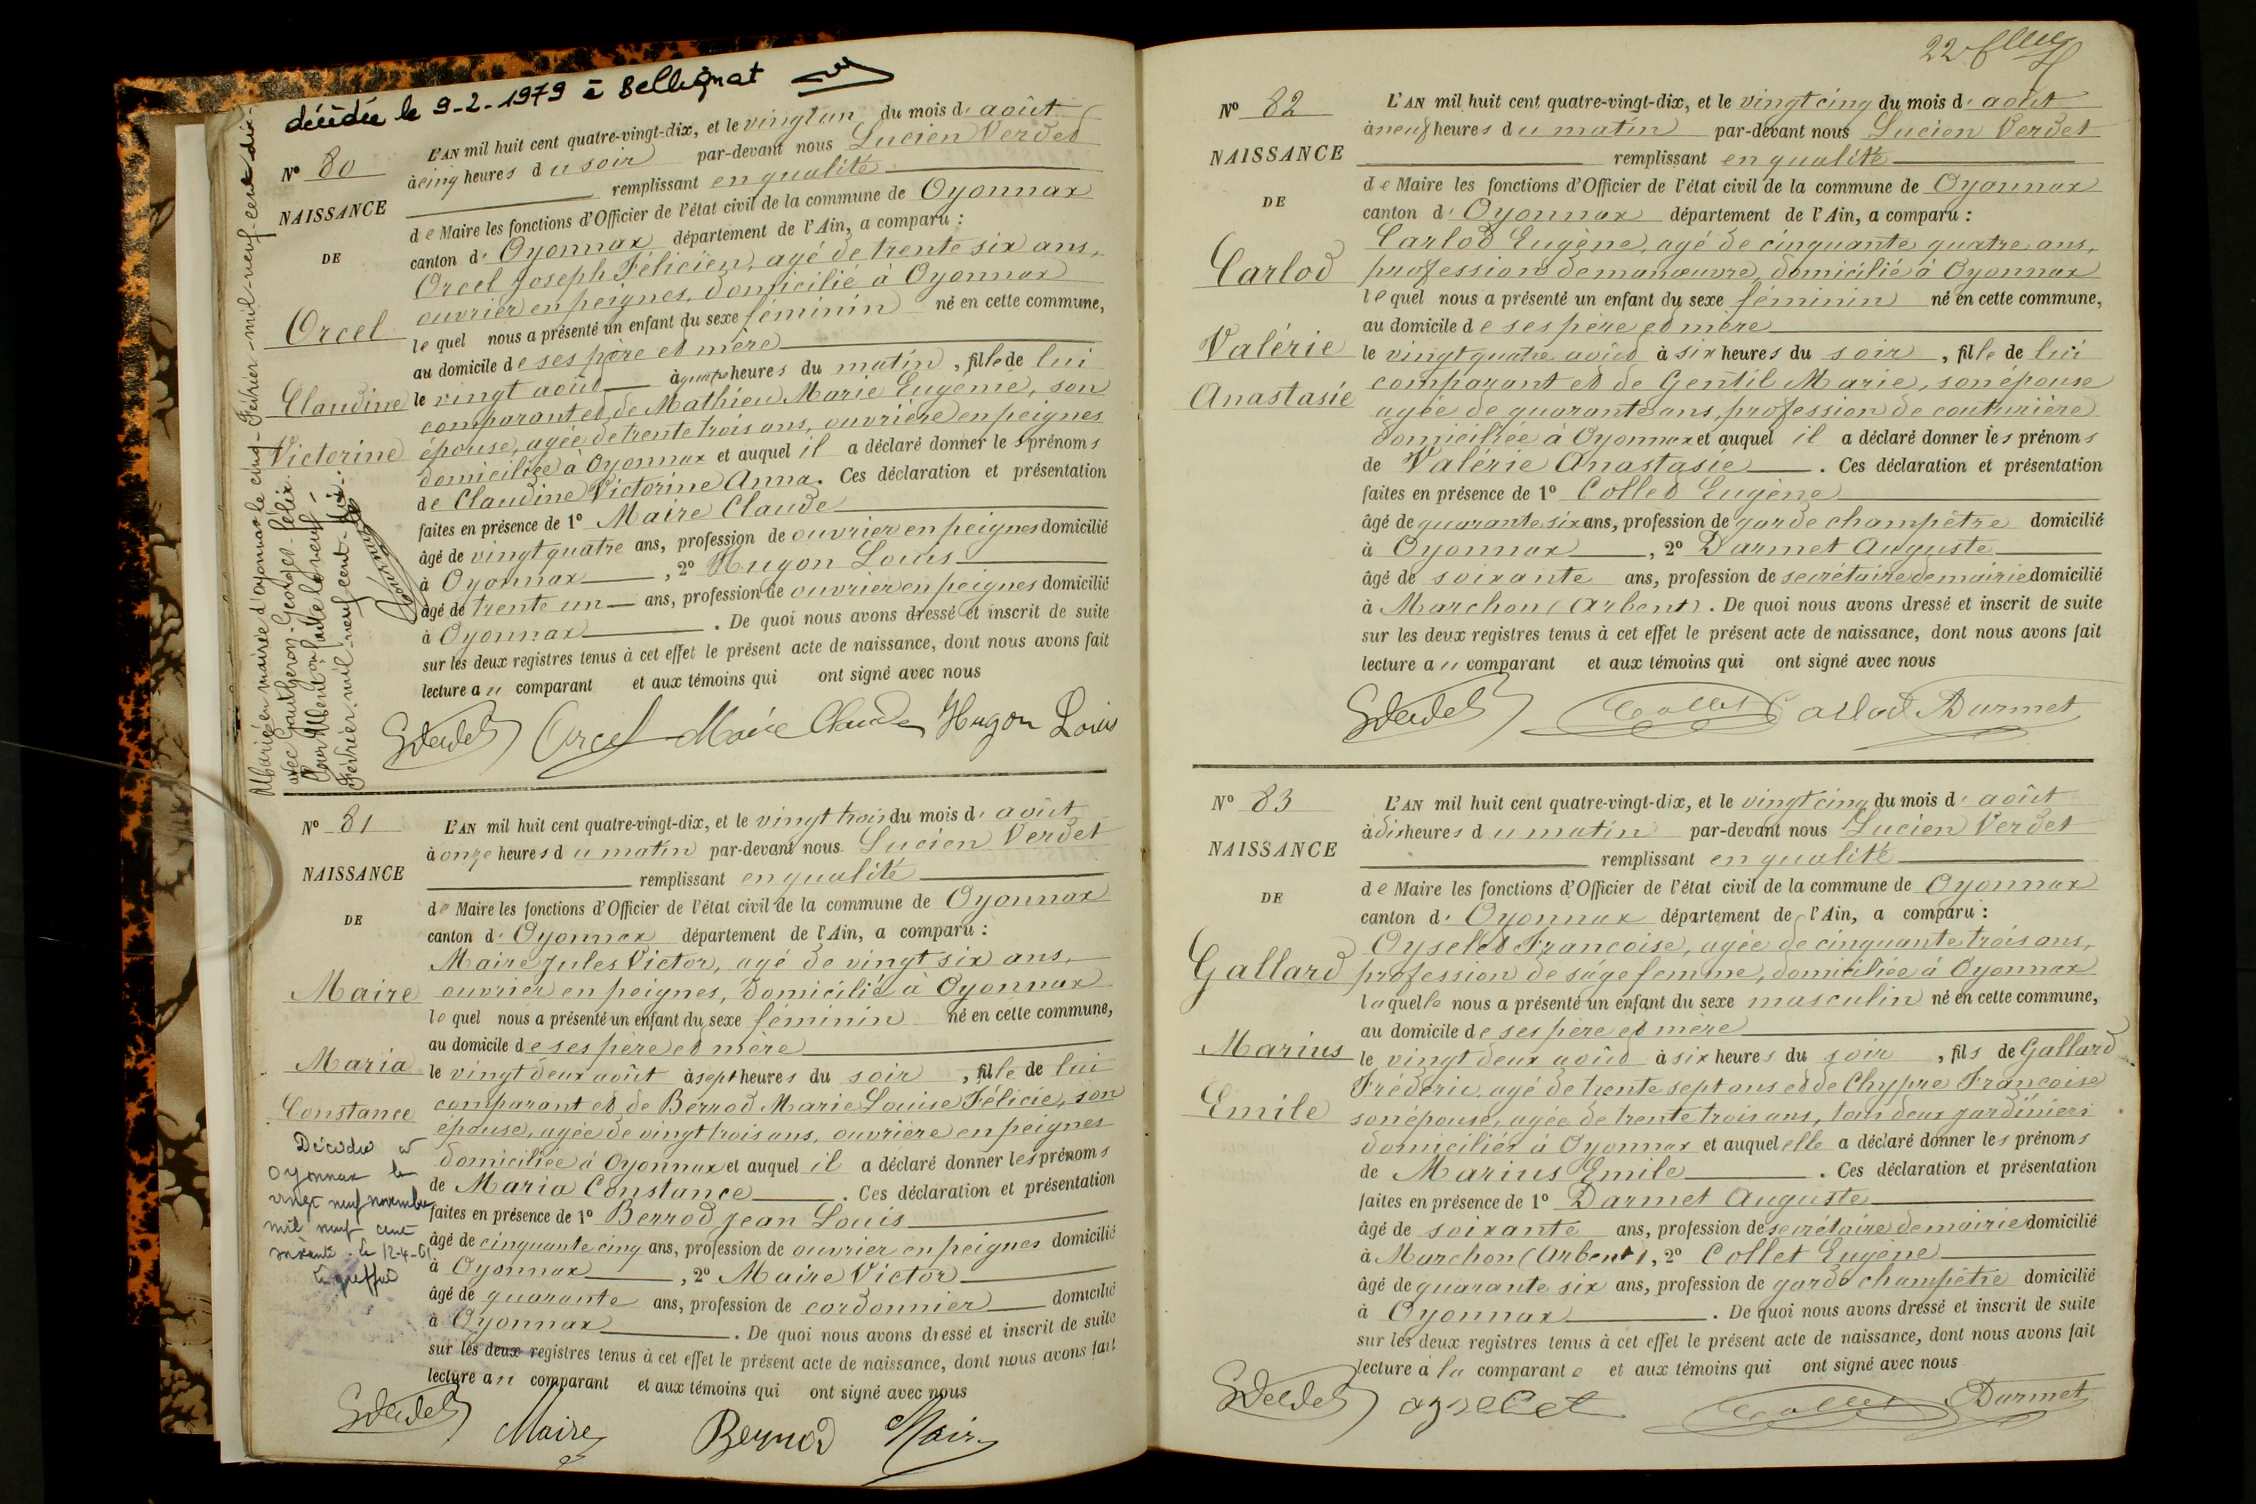 décédée le 9-2-1979 à Bellignat
Nº 80
NAISSANCE
DE
Orcel
Claudine
Victorine
Marié en mairie d'oyonnax le cinq - Février - mil - neuf - cent dix -
avec Gautheron - Georges - Félix.
Pour Mention faite le neuf -
Février - mil - neuf cent - dix -
L'AN mil huit cent quatre-vingt-dix, et le vingt un du mois d' août
à cinq heures du soir par-devant nous Lucien Verdet
remplissant en qualité
de Maire les fonctions d'Officier de l'état civil de la commune de Oyonnax
canton d' Oyonnax département de l'Ain, a comparu :
Orcel Joseph Félicien, agé de trente six ans,
ouvrier en peignes, domicilié à Oyonnax
lequel nous a présenté un enfant du sexe féminin né en cette commune,
au domicile de ses père et mère
le vingt août à quatre heures du matin, fille de lui
comparant et de Mathieu Marie Eugenie, son
épouse, agée de trente trois ans, ouvrière en peignes
domiciliée à Oyonnax et auquel il a déclaré donner les prénoms
de Claudine Victorine Anna. Ces déclaration et présentation
faites en présence de 1º Maire Claude
âgé de vingt quatre ans, profession de ouvrier en peignes domicilié
à Oyonnax, 2º Hugon Louis
âgé de trente un ans, profession de ouvrier en peignes domicilié
à Oyonnax. De quoi nous avons dressé et inscrit de suite
sur les deux registres tenus à cet effet le présent acte de naissance, dont nous avons fait
lecture au comparant et aux témoins qui ont signé avec nous
Orcel Maire Claude Hugon Louis
Nº 81
NAISSANCE
DE
Maire
Maria
Constance
Décédée à
Oyonnax le
vingt neuf novembre
mil neuf cent
soixante. le 12-4-61
Le greffier
L'AN mil huit cent quatre-vingt-dix, et le vingt trois du mois d' août
à onze heures du matin par-devant nous Lucien Verdet
remplissant en qualité
de Maire les fonctions d'Officier de l'état civil de la commune de Oyonnax
canton d' Oyonnax département de l'Ain, a comparu :
Maire Jules Victor, agé de vingt six ans,
ouvrier en peignes, domicilié à Oyonnax
lequel nous a présenté un enfant du sexe féminin né en cette commune,
au domicile de ses père et mère
le vingt deux août à sept heures du soir, fille de lui
comparant et de Berrod Marie Louise Félicie, son
épouse, agée de vingt trois ans, ouvrière en peignes
domiciliée à Oyonnax et auquel il a déclaré donner les prénoms
de Maria Constance. Ces déclaration et présentation
faites en présence de 1º Berrod Jean Louis
âgé de cinquante cinq ans, profession de ouvrier en peignes domicilié
à Oyonnax, 2º Maire Victor
âgé de quarante ans, profession de cordonnier domicilié
à Oyonnax. De quoi nous avons dressé et inscrit de suite
sur les deux registres tenus à cet effet le présent acte de naissance, dont nous avons fait
lecture au comparant et aux témoins qui ont signé avec nous
Maire Berrod Maire
22
Nº 82
NAISSANCE
DE
Carlod
Valérie
Anastasie
L'AN mil huit cent quatre-vingt-dix, et le vingt cinq du mois d' août
à neuf heures du matin par-devant nous Lucien Verdet
remplissant en qualité
de Maire les fonctions d'Officier de l'état civil de la commune de Oyonnax
canton d' Oyonnax département de l'Ain, a comparu :
Carlod Eugène, agé de cinquante quatre ans,
profession de manœuvre, domicilié à Oyonnax
lequel nous a présenté un enfant du sexe féminin né en cette commune,
au domicile de ses père et mère
le vingt quatre août à six heures du soir, fille de lui
comparant et de Gentil Marie, son épouse
agée de quarante ans, profession de couturière
domiciliée à Oyonnax et auquel il a déclaré donner les prénoms
de Valérie Anastasie. Ces déclaration et présentation
faites en présence de 1º Collet Eugène
âgé de quarante six ans, profession de garde champêtre domicilié
à Oyonnax, 2º Darmet Auguste
âgé de soixante ans, profession de secrétaire de mairie domicilié
à Marchon (Arbent). De quoi nous avons dressé et inscrit de suite
sur les deux registres tenus à cet effet le présent acte de naissance, dont nous avons fait
lecture au comparant et aux témoins qui ont signé avec nous
Collet Carlod Darmet
Nº 83
NAISSANCE
DE
Gallard
Marius
Emile
L'AN mil huit cent quatre-vingt-dix, et le vingt cinq du mois d' août
à dix heures du matin par-devant nous Lucien Verdet
remplissant en qualité
de Maire les fonctions d'Officier de l'état civil de la commune de Oyonnax
canton d' Oyonnax département de l'Ain, a comparu :
Oyselet Françoise, agée de cinquante trois ans,
profession de sage femme, domiciliée à Oyonnax
laquelle nous a présenté un enfant du sexe masculin né en cette commune,
au domicile de ses père et mère
le vingt deux août à six heures du soir, fils de Gallard
Fréderic agé de trente sept ans et de Chypre Françoise
son épouse, agée de trente trois ans, tous deux jardiniers
domiciliés à Oyonnax et auquel elle a déclaré donner les prénoms
de Marius Emile. Ces déclaration et présentation
faites en présence de 1º Darmet Auguste
âgé de soixante ans, profession de secrétaire de mairie domicilié
à Marchon (Arbent), 2º Collet Eugène
âgé de quarante six ans, profession de garde champêtre domicilié
à Oyonnax. De quoi nous avons dressé et inscrit de suite
sur les deux registres tenus à cet effet le présent acte de naissance, dont nous avons fait
lecture à la comparante et aux témoins qui ont signé avec nous
oyselet Collet Darmet